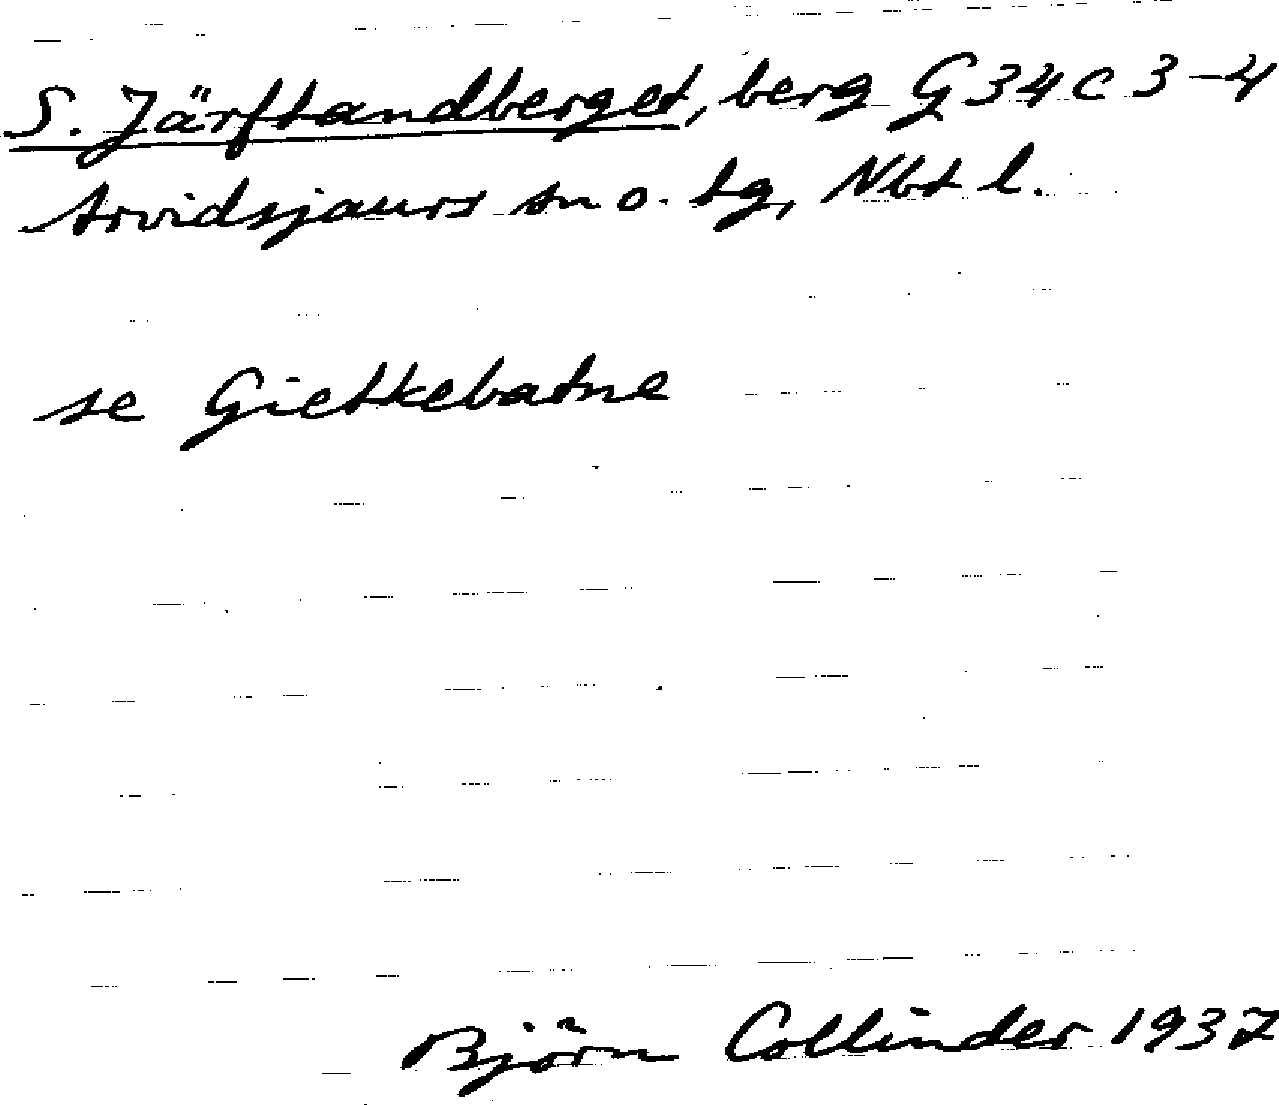 S. Järftandberget, berg G 34 C 3-4
Arvidsjaurs sn o. tg, Nbt l.
se Gietkebatne
Björn Collinder 1937